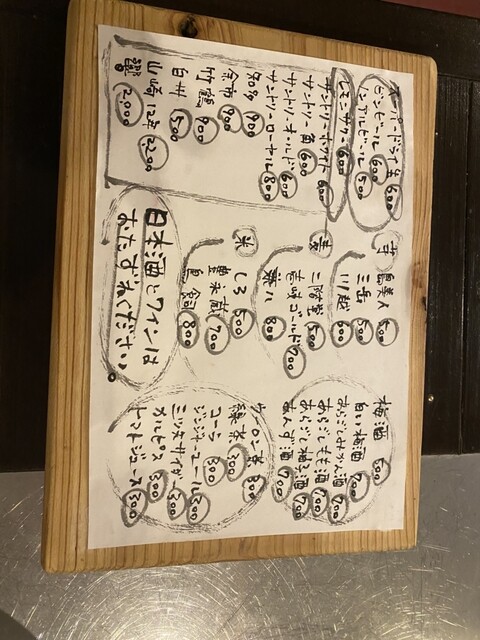 スーパードライ生 600
ビンビール 600
ノンアルビール 500
レモンサワー 600
サントリーホワイト 600
サントリー角 600
サントリーオールド 600
サントリーローヤル 800
知多 900
余市 900
竹鶴 900
白州 500
山崎12年 2200
響 2,000
芋
島美人 500
三岳 600
川越 600
麦
二階堂 500
壱岐ゴールド 700
兼八 800
米
しろ 500
豊永蔵 700
鳥飼 800
日本酒とワインは
おたずねください。
梅酒 600
白い梅酒 700
あらごしみかん酒 700
あらごしもも酒 700
あらごし梅酒 700
あんず酒 700
ウーロン茶 300
緑茶 300
コーラ 300
ジンジャーエール 300
三ツ矢サイダー 300
カルピス 300
トマトジュース 300